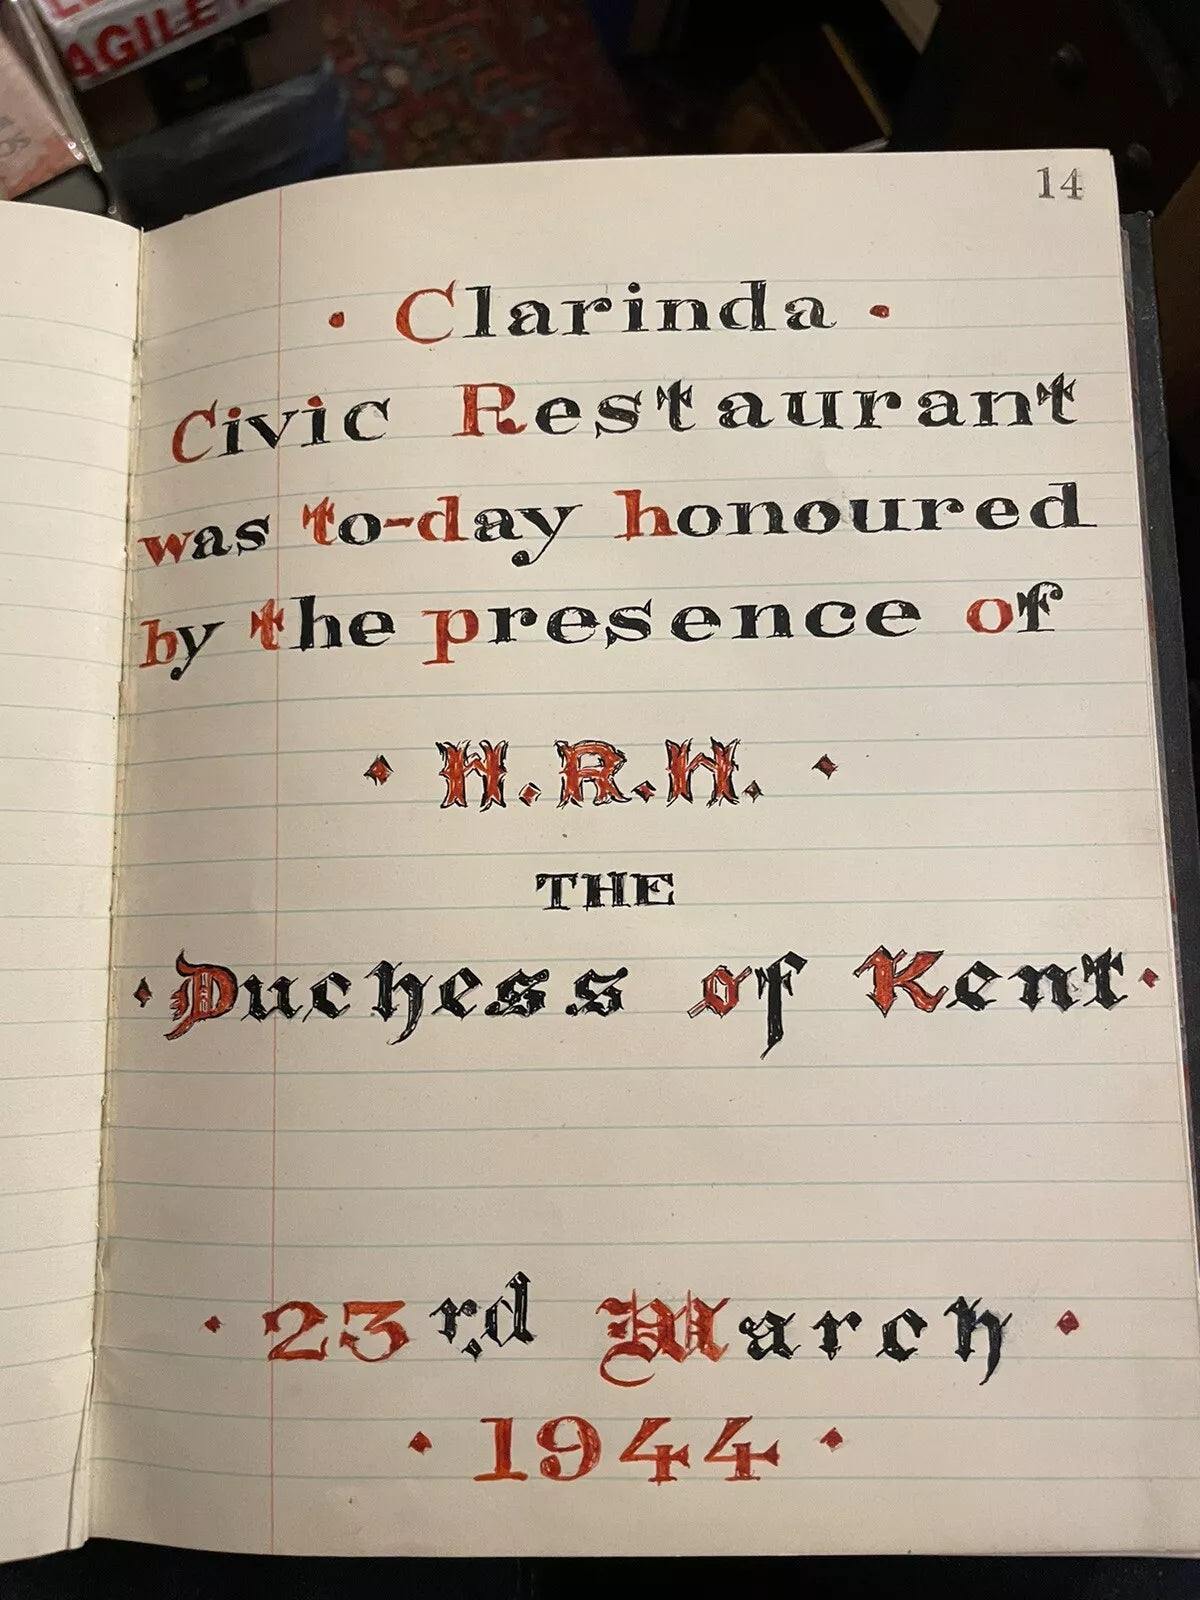 AGILE
14
· Clarinda ·
Civic Restaurant
was to-day honoured
by the presence of
· H.R.H. ·
THE
· Duchess of Kent ·
· 23rd March ·
· 1944 ·